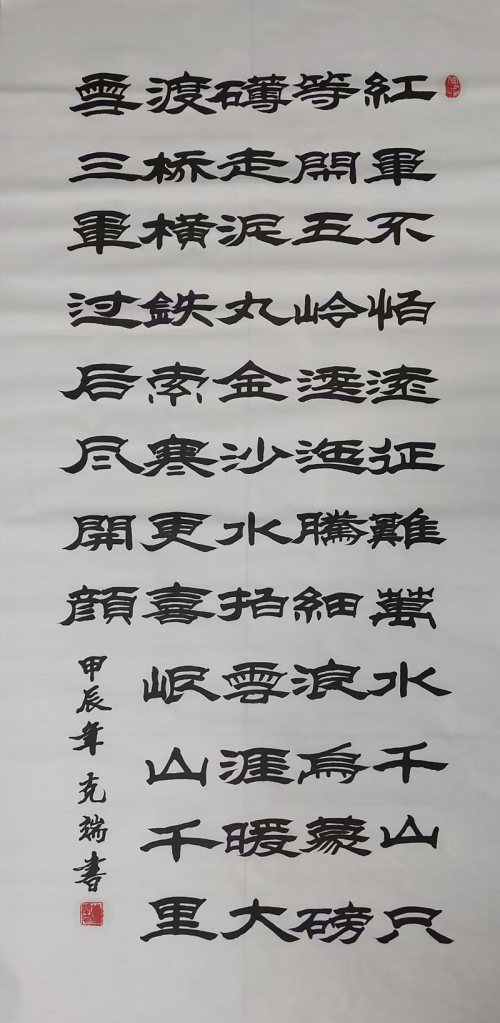 紅軍不怕遠征難萬水千山只
等開五岭逶迤騰細浪烏蒙磅
礴走泥丸金沙水拍雲涯暖大
渡桥橫鉄索寒更喜岷山千里
雪三軍过后尽開顔
甲辰年克端書